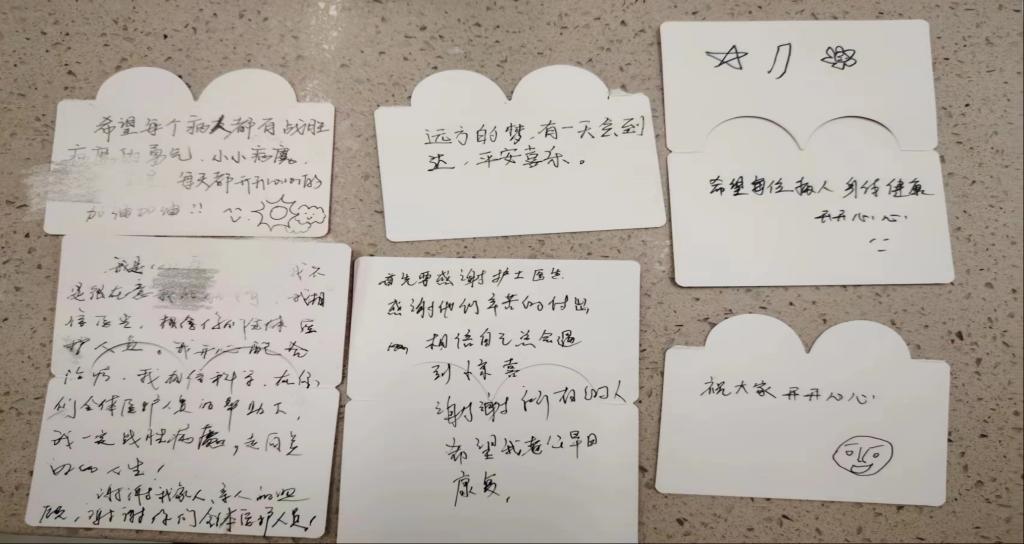 希望每个病人都有战胜
病魔的勇气、小小病魔,
每天都开开心心的
加油加油!!
远方的梦,有一天会到
达,平安喜乐。
希望每位病人 身体健康
开开心心
我是 我不
是很在意 我相
信医生,相信你们全体医
护人员。我开心配合
治疗,我相信科学,在你
们全体医护人员的帮助下,
我一定战胜病魔,走向美
的人生!
谢谢我家人、亲人的照
顾,谢谢你们全体医护人员!
首先要感谢护士医生
感谢他们辛苦的付出
相信自己总会遇
到惊喜
谢谢所有的人
希望我老公早日
康复,
祝大家开开心心